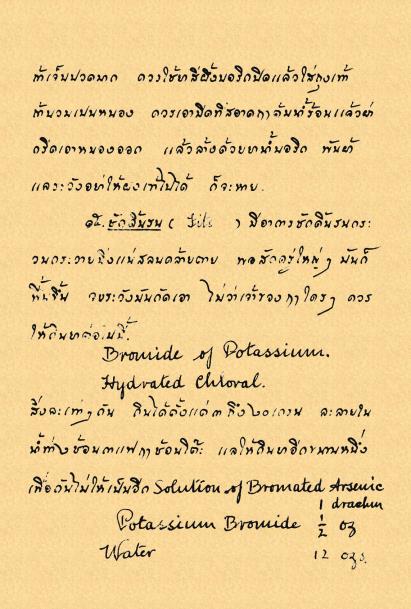 ถ้าเจ็บปวดมาก ควรใช้ขี้ผึ้งบอริดปิดแล้วใส่ถุงเท้า
ถ้าบวมเปนหนอง ควรเอามีดที่สอาดทาจันน้ำร้อนแล้วผ่า
กรีดเอาหนองออก แล้วล้างด้วยยาน้ำบอริด พันผ้า
แลระวังอย่าให้ผงเข้าไปได้ ก็จะหาย.
ชักดิ้นรน ( fits ) มีอาการชักดิ้นรนกระ
วนกระวายถึงแน่สลบคล้ายตาย พอสักครู่ใหญ่ ๆ มันก็
ฟื้นขึ้น จงระวังมันกัดเอา ไม่ว่าเจ้าของฤาใคร ๆ ควร
ให้กินยาต่อไปนี้.
Bromide of Potassium.
Hydrated Chloral.
สิ่งละเท่า ๆ กัน กินได้ตั้งแต่ ๓ ถึง ๖๐ เกรน ละลายใน
น้ำท่าช้อนกาแฟฤาช้อนโต๊ะ แลให้กินยาอีกขนานหนึ่ง
เพื่อกันไม่ให้เป็นอีก Solution of Bromated Arsenic
1 drachm
Potassium Bromide ½ oz
Water 12 ozs.